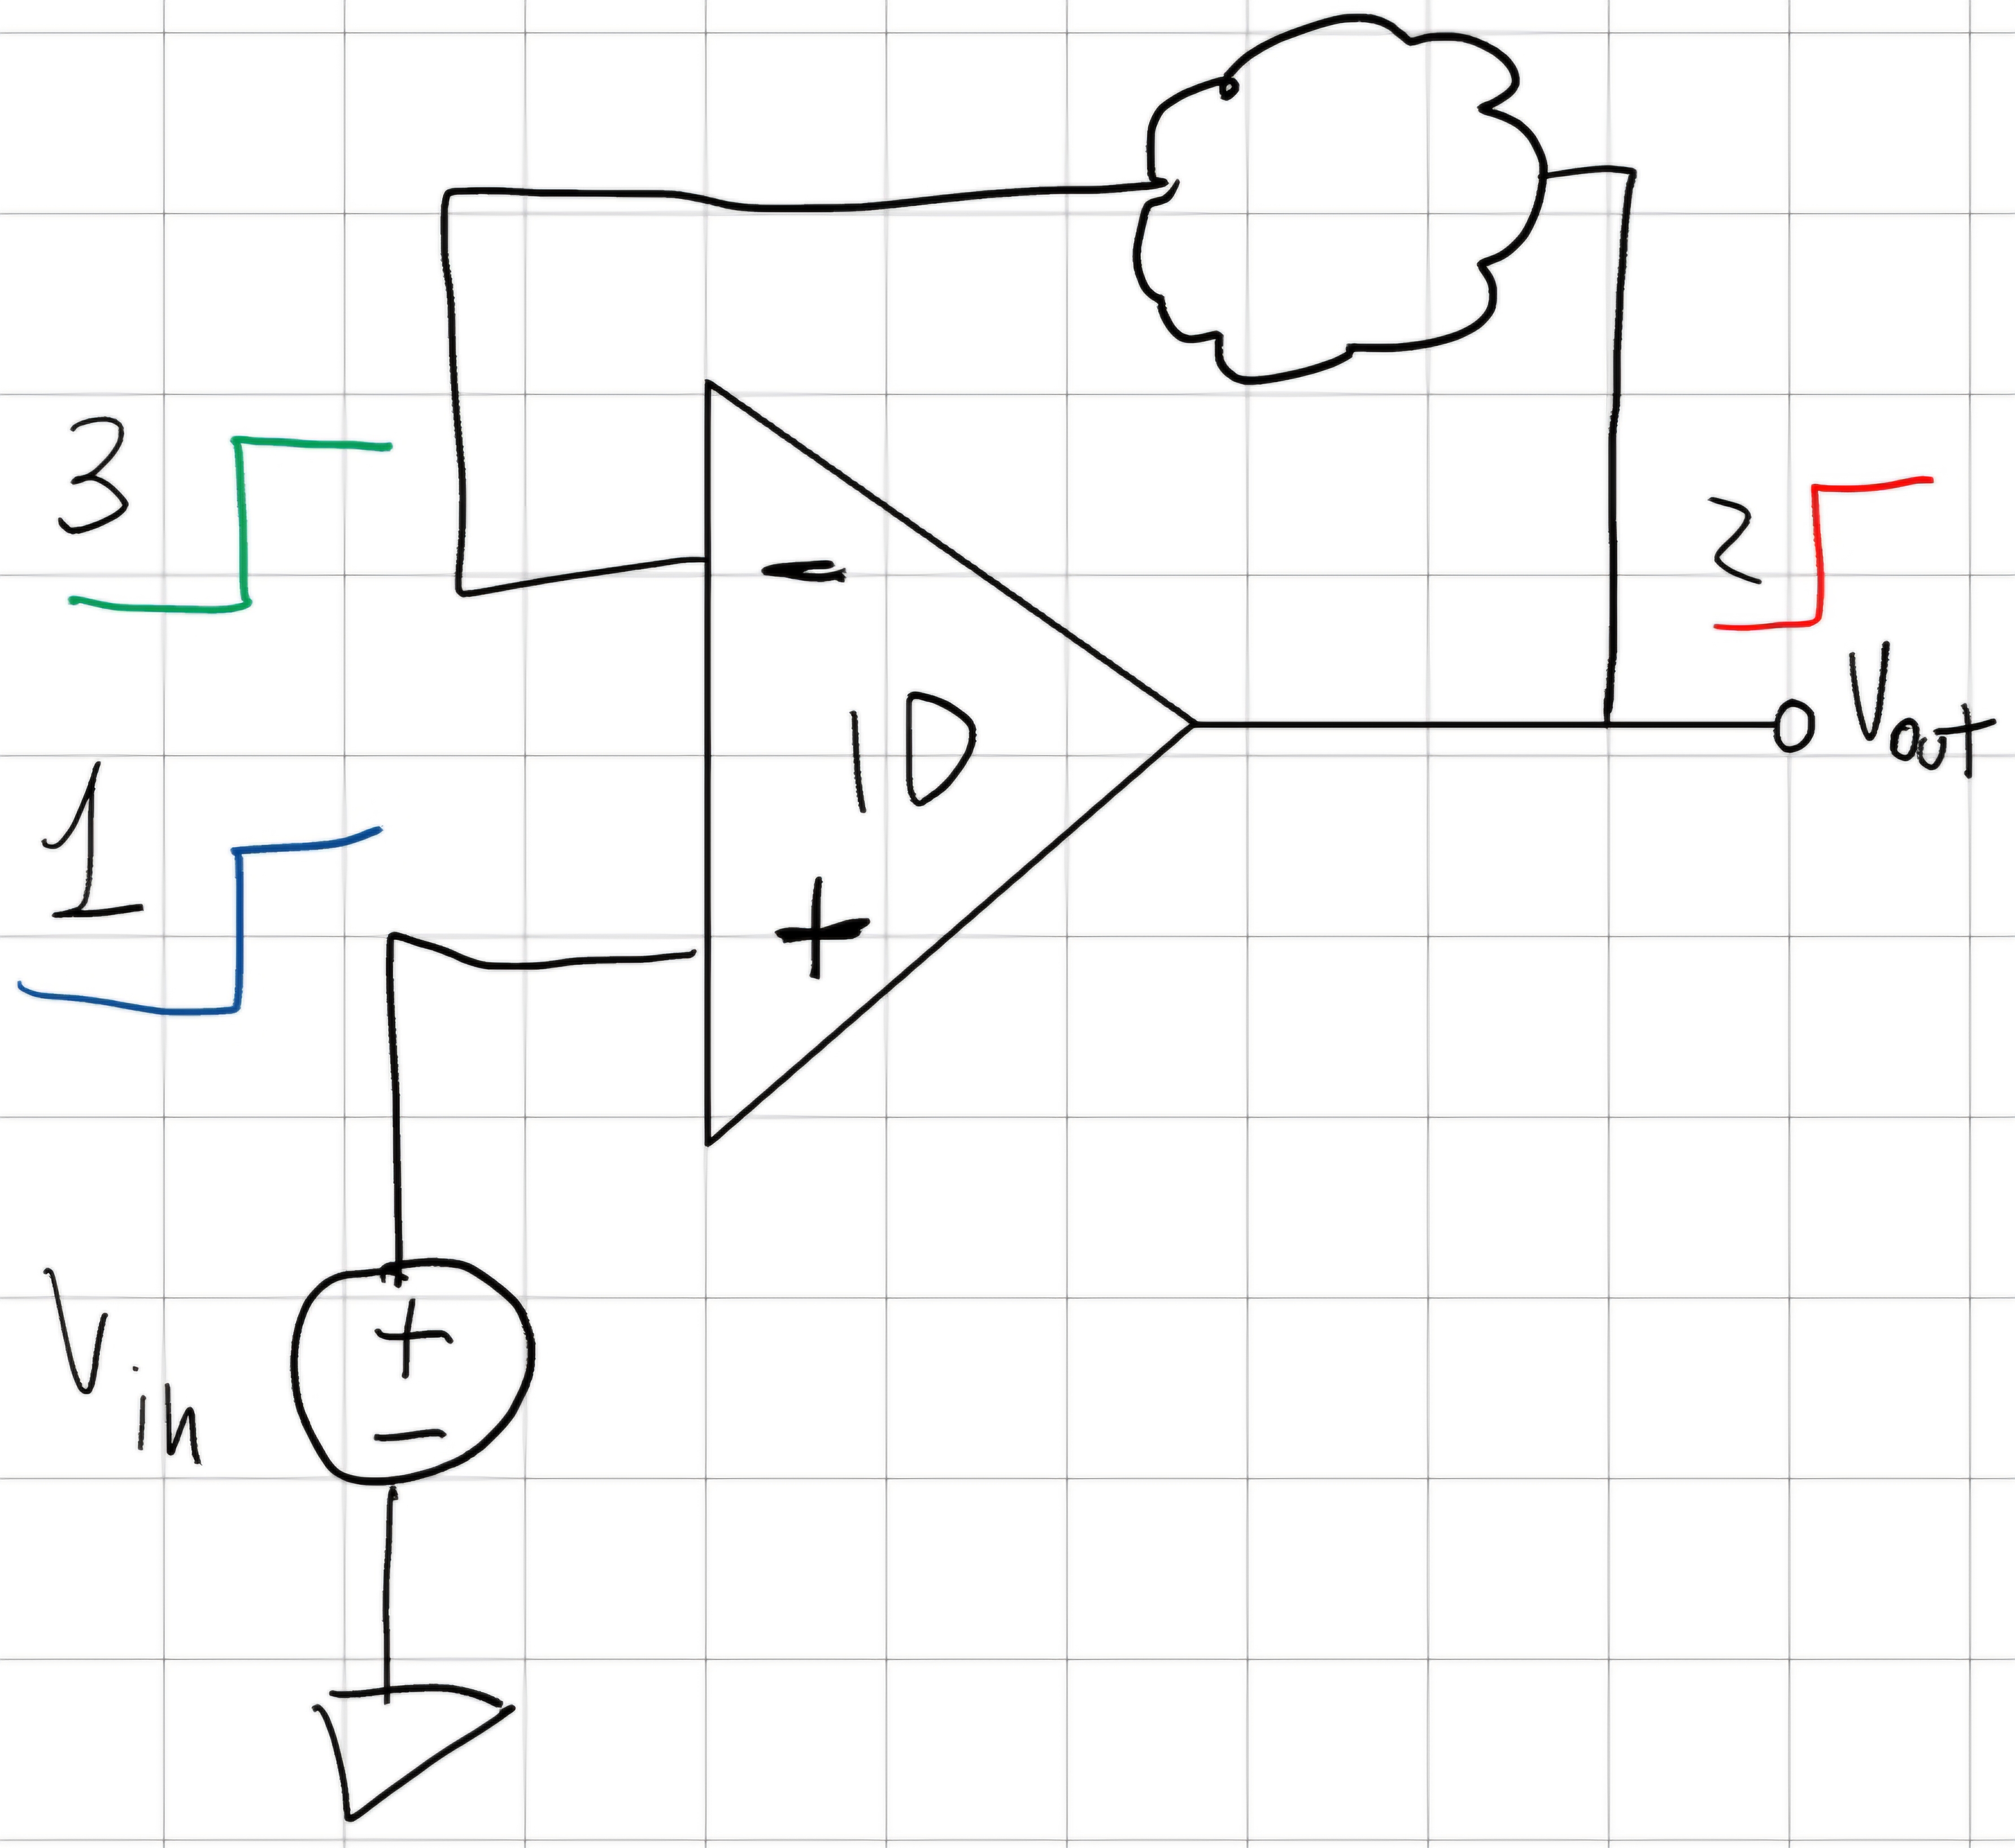 3
2
-
1D
Vout
1
+
Vin
+
-